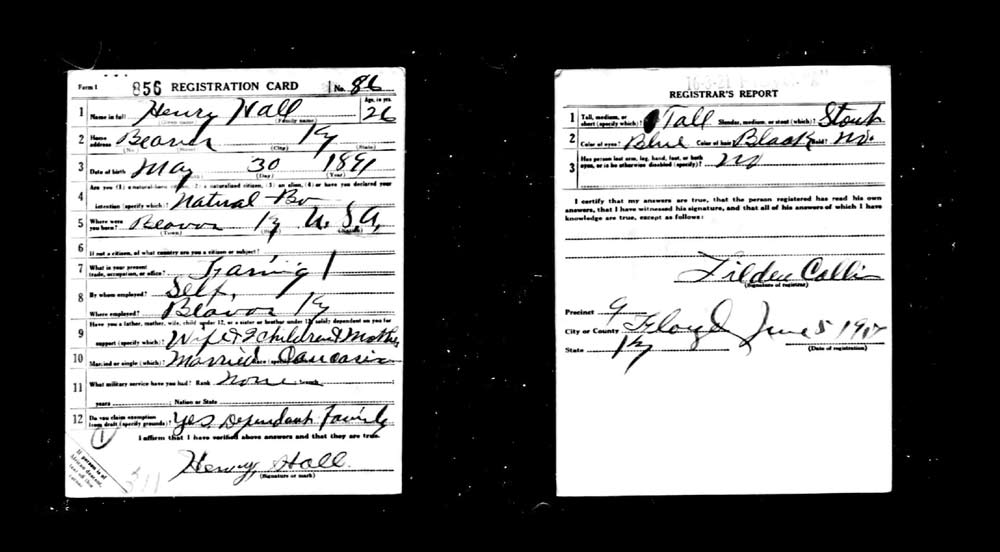 Form 1 856 REGISTRATION CARD No. 86
1 Name in full Henry Hall Age, in yrs. 26
(Given name) (Family name)
2 Home address Beaver Ky
(No.) (Street) (City) (State)
3 Date of birth May 30 1891
(Month) (Day) (Year)
Are you (1) a natural-born citizen, (2) a naturalized citizen, (3) an alien, (4) or have you declared your
4 intention (specify which)? Natural-Bo
5 Where were you born? Beaver Ky U.S.A,
(Town) (State) (Nation)
6 If not a citizen, of what country are you a citizen or subject?
7 What is your present trade, occupation, or office? Farming
8 By whom employed? Self,
Where employed? Beaver Ky
Have you a father, mother, wife, child under 12, or a sister or brother under 12, solely dependent on you for
9 support (specify which)? Wife & 2 children & Mother
10 Married or single (which)? Married Race (specify which)? Caucasin
11 What military service have you had? Rank None branch
years Nation or State
12 Do you claim exemption from draft (specify grounds)? Yes, Dependant Family
1
I affirm that I have verified above answers and that they are true.
Henry Hall
(Signature or mark)
If person is of African descent, tear off this corner.
REGISTRAR'S REPORT
1 Tall, medium, or short (specify which)? Tall Slender, medium, or stout (which)? Stout
2 Color of eyes? Blue Color of hair? Black Bald? No.
3 Has person lost arm, leg, hand, foot, or both eyes, or is he otherwise disabled (specify)? No
I certify that my answers are true, that the person registered has read his own
answers, that I have witnessed his signature, and that all of his answers of which I have
knowledge are true, except as follows:
Tilden Collin
(Signature of registrar)
Precinct 9
City or County Floyd June 5 1917
State Ky (Date of registration)